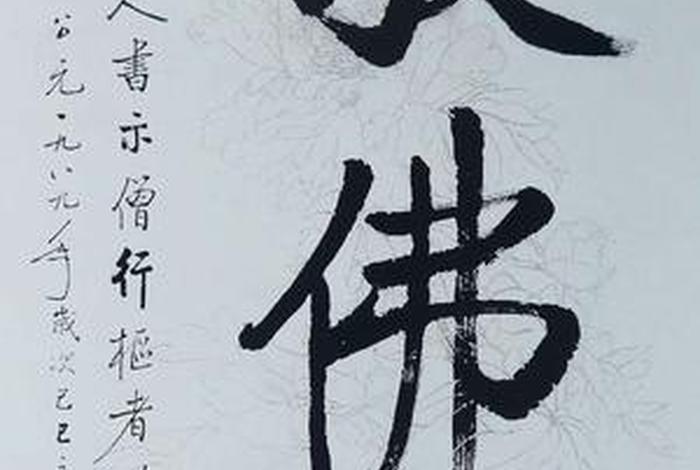 佛
人書示僧行樞者
公元一九八九年歲次己巳